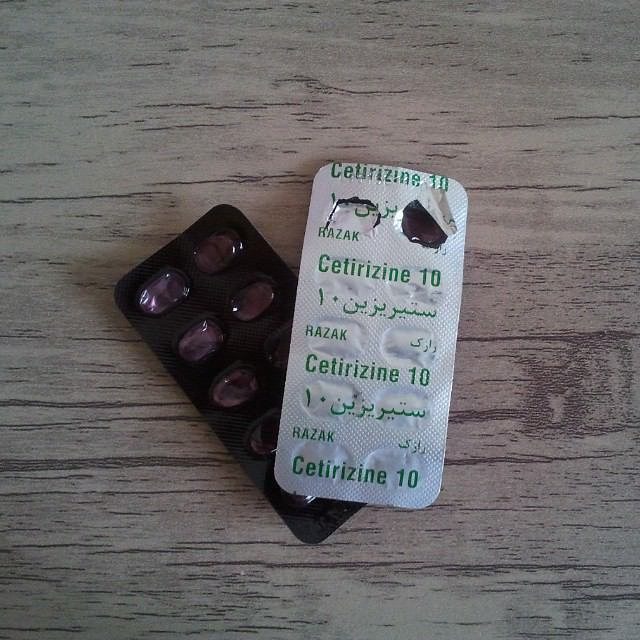 Cetirizine 10
RAZAK
Cetirizine 10
ستیریزین ۱۰
RAZAK رازک
Cetirizine 10
ستیریزین ۱۰
RAZAK رازک
Cetirizine 10